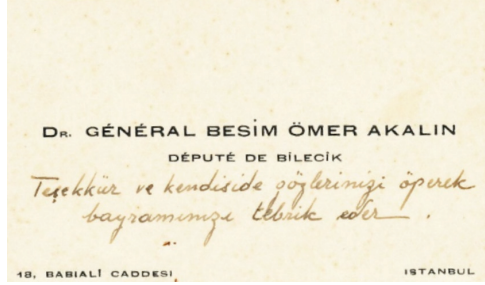 DR. GÉNÉRAL BESİM ÖMER AKALIN
DÉPUTÉ DE BİLECİK
Teşekkür ve kendiside gözlerinizi öperek
bayramınızı tebrik eder.
18, BABIALİ CADDESİ
ISTANBUL